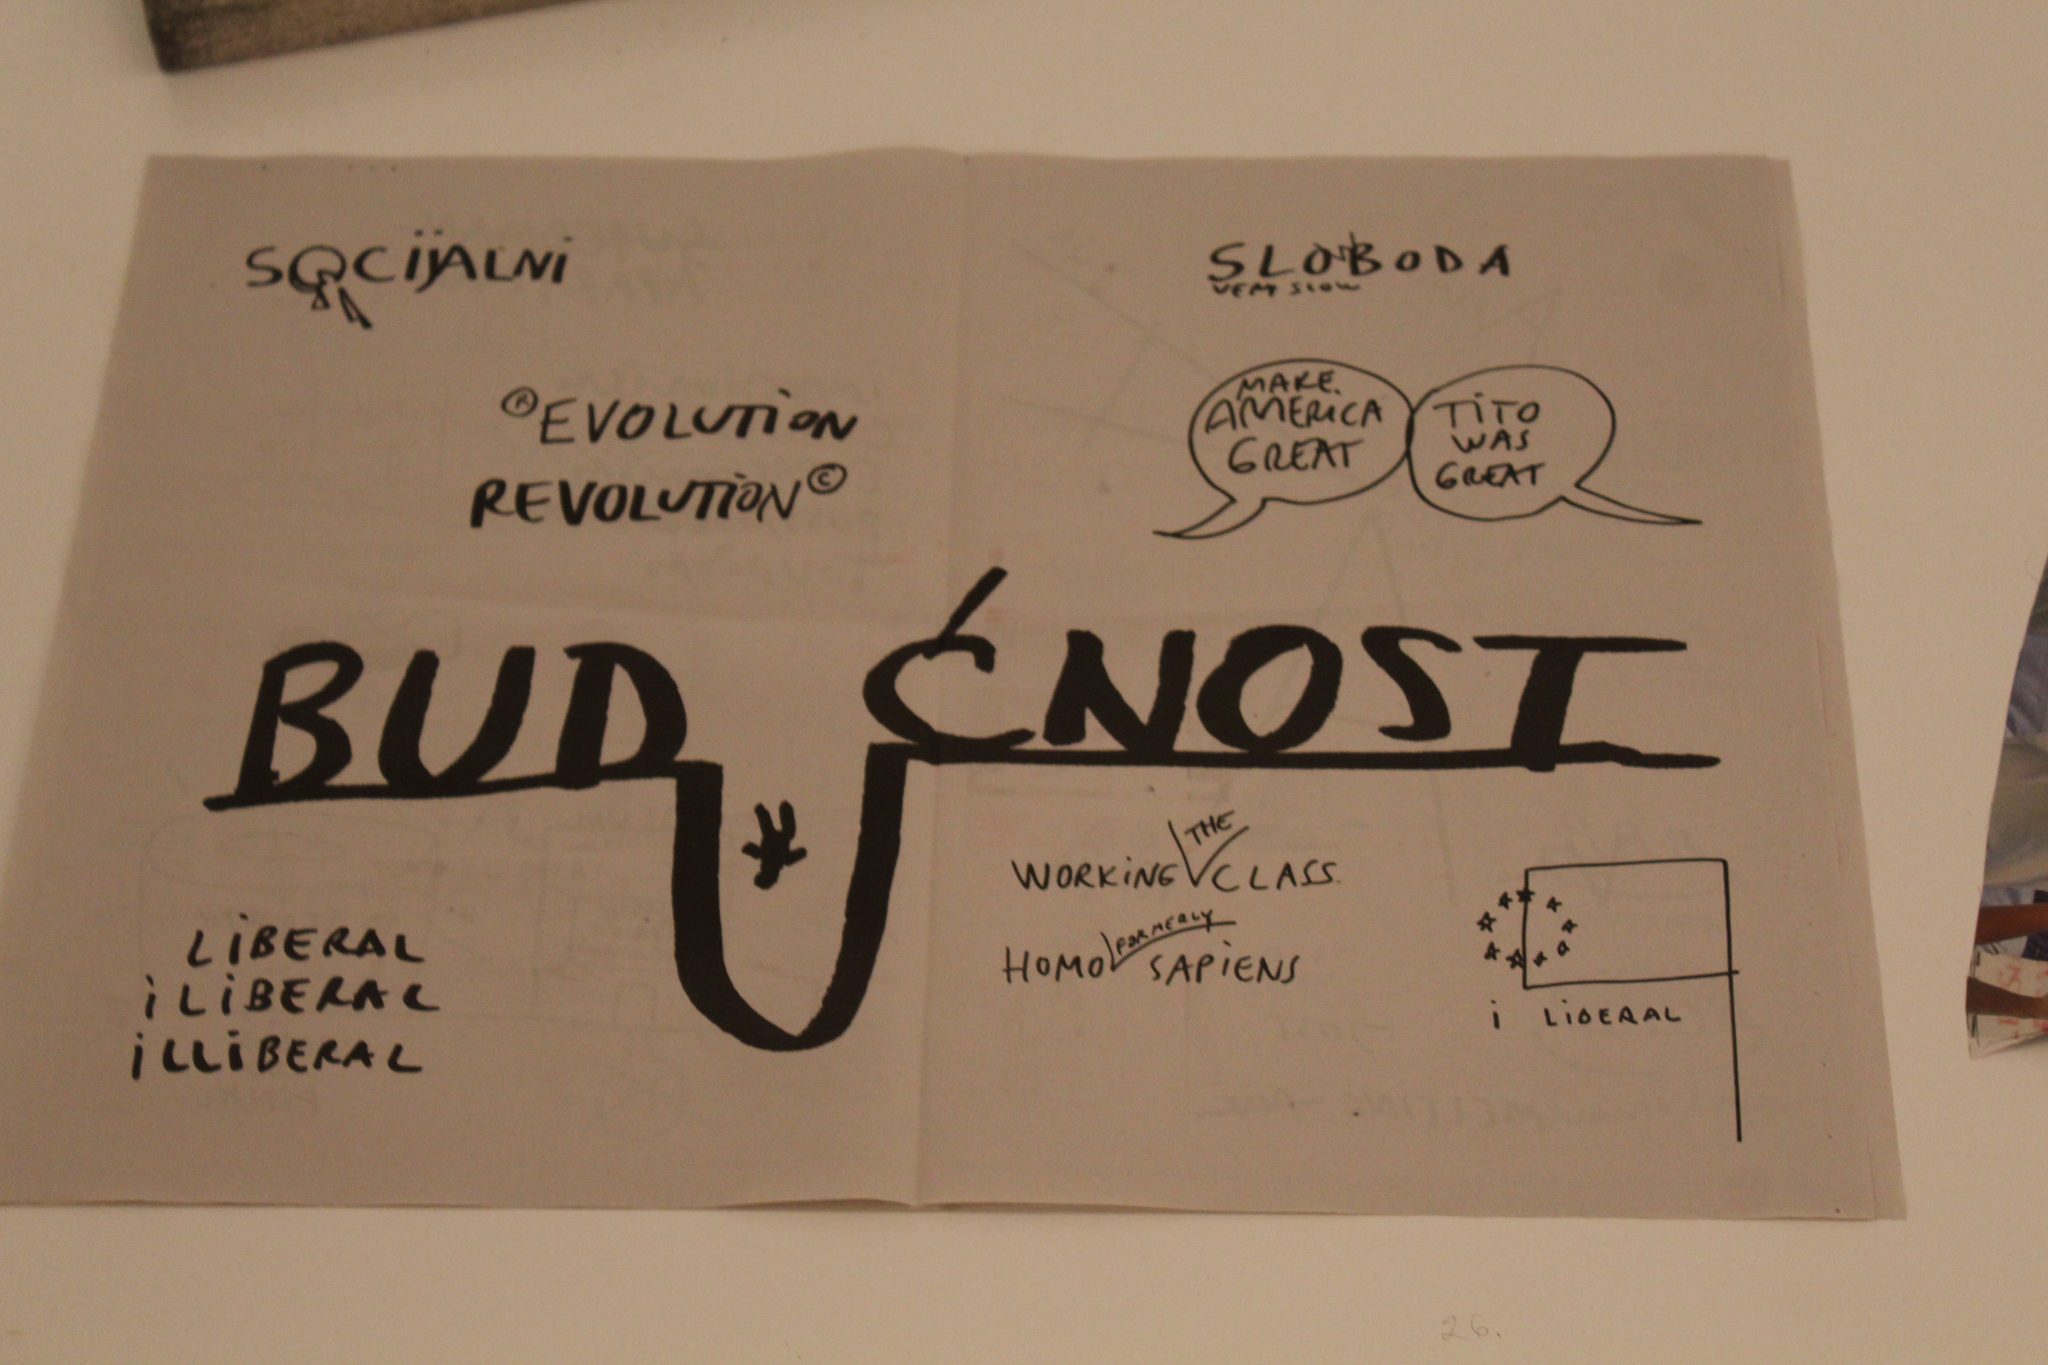 SOCIJALNI
SLOBODA
VERY SLOW
®EVOLUTION
REVOLUTION©
MAKE
AMERICA
GREAT
TITO
WAS
GREAT
BUDUĆNOST
THE
WORKING CLASS
FORMERLY
HOMO SAPIENS
LIBERAL
i LIBERAL
iLLIBERAL
i LIBERAL
26.